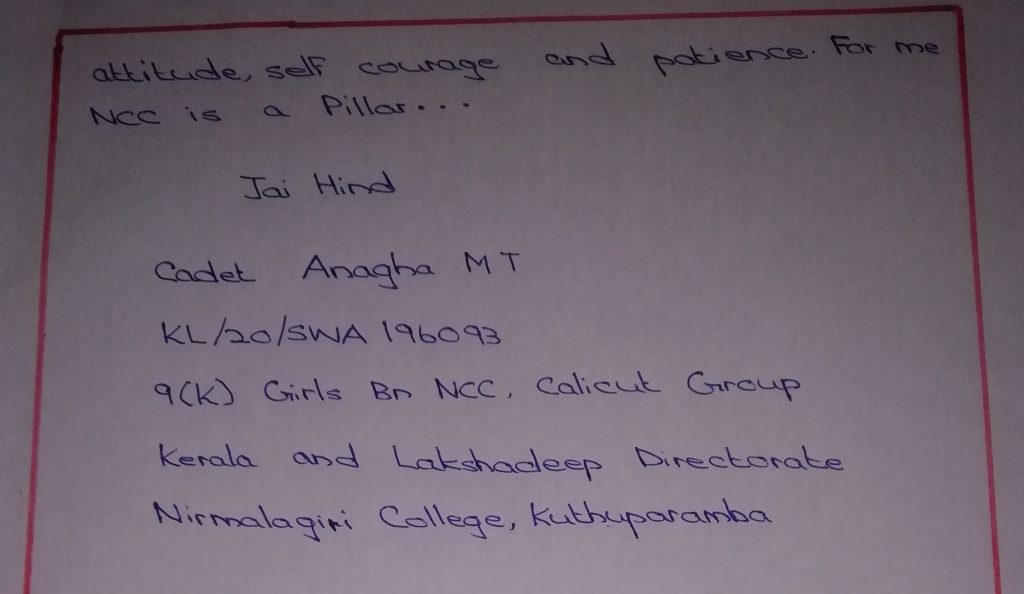 attitude, self courage and patience. For me
NCC is a Pillar...
Jai Hind
Cadet Anagha M T
KL/20/SWA 196093
9(K) Girls Bn NCC, Calicut Group
Kerala and Lakshadeep Directorate
Nirmalagiri College, Kuthuparamba